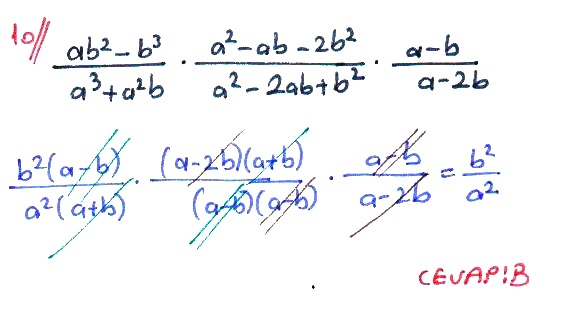 10// (ab² - b³)/(a³ + a²b) · (a² - ab - 2b²)/(a² - 2ab + b²) · (a - b)/(a - 2b)
(b²(a - b))/(a²(a + b)) · ((a - 2b)(a + b))/((a - b)(a - b)) · (a - b)/(a - 2b) = b²/a²
CEVAP: B